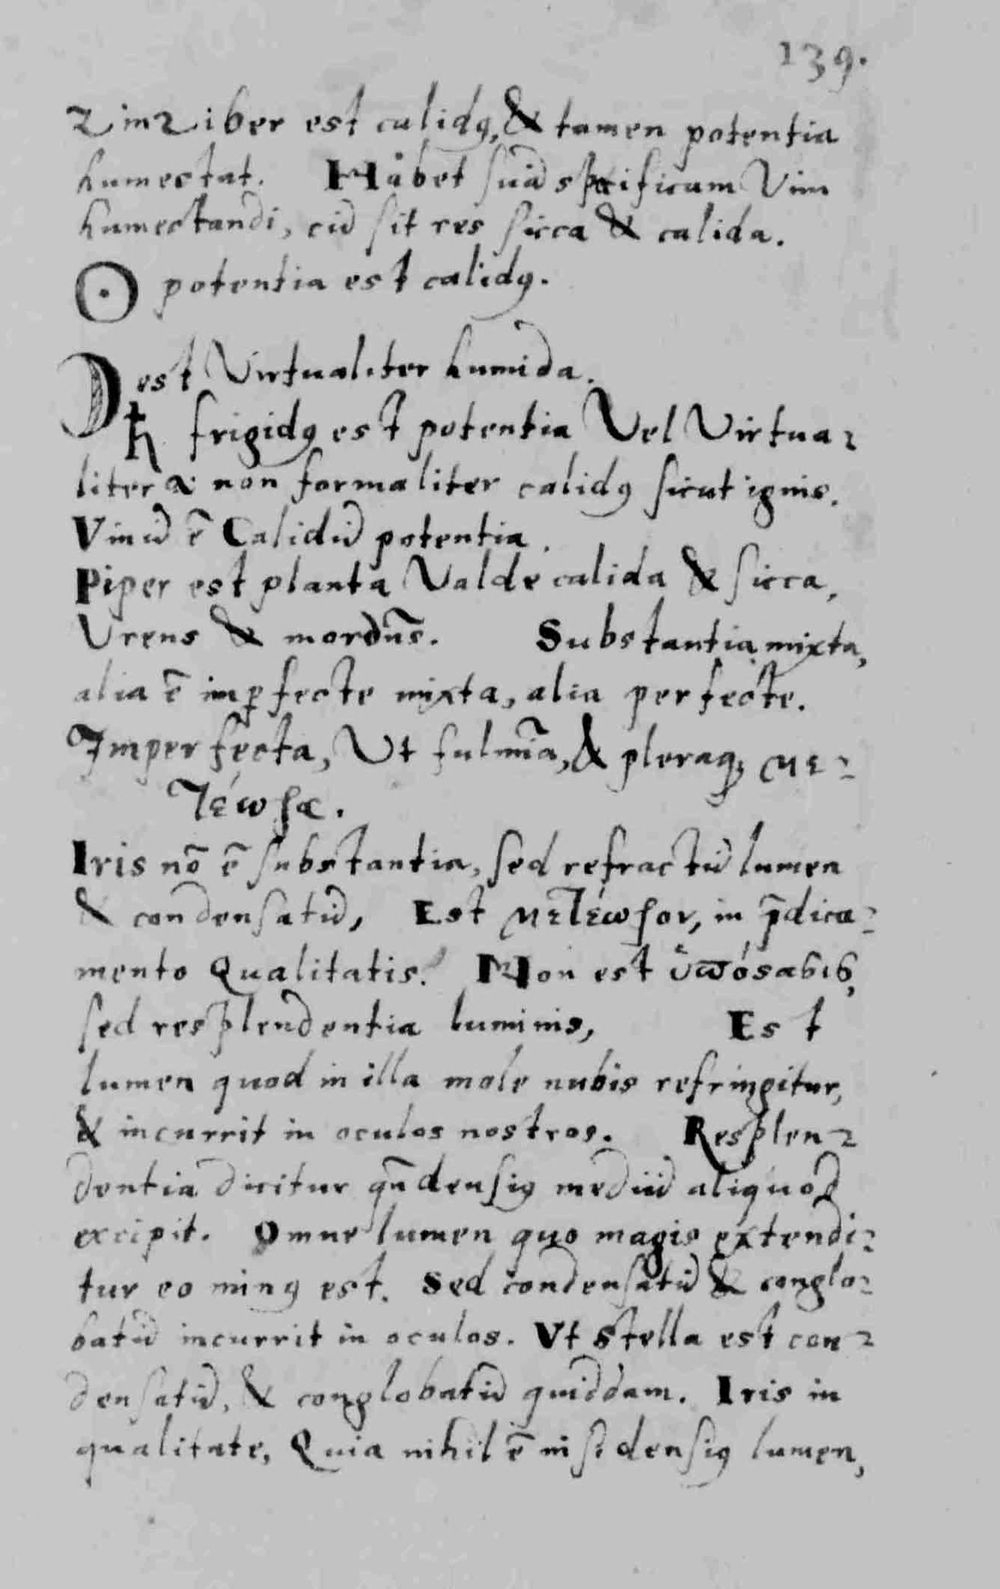 139.
Zinziber est calidꝰ, & tamen potentia
humectat. Habet suā specificam Vim
humectandi, cū sit res sicca & calida.
☉ potentia est calidꝰ.
☽ est Virtualiter humida.
♄ frigidꝰ est potentia Vel Virtua⸗
liter & non formaliter calidꝰ sicut ignis.
Vinū ē Calidū potentia.
Piper est planta Valde calida & sicca,
Vrens & mordēs. Substantia mixta,
alia ē imꝑfecte mixta, alia perfecte.
Imperfecta, Vt fulmīa, & pleraqꝫ με⸗
τέωρα.
Iris nō ē substantia, sed refractū lumen
& condensatū, Est μετέωρον, in p̄dica⸗
mento Qualitatis. Non est ὑπόστασις,
sed resplendentia luminis, Est
lumen quod in illa mole nubis refringitur,
& incurrit in oculos nostros. Resplen⸗
dentia dicitur qn̄ densiꝰ mediū aliquod
excipit. Omne lumen quo magis extendi⸗
tur eo minꝰ est. Sed condensatū & conglo⸗
batū incurrit in oculos. Vt Stella est con⸗
densatū, & conglobatū quiddam. Iris in
qualitate, Quia nihil ē nisi densiꝰ lumen,